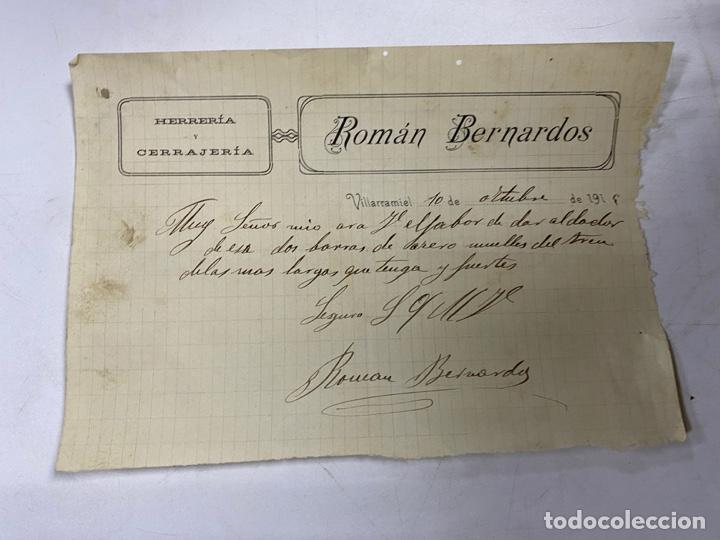 HERRERÍA
Y
CERRAJERÍA
Román Bernardos
Villarramiel 10 de octubre de 191
Muy Señor mio ara Vd el fabor de dar al dador
de esta dos barras de acero muelles del tren
de las mas largas que tenga y fuertes
Seguro S
Roman Bernardos
todocoleccion.net